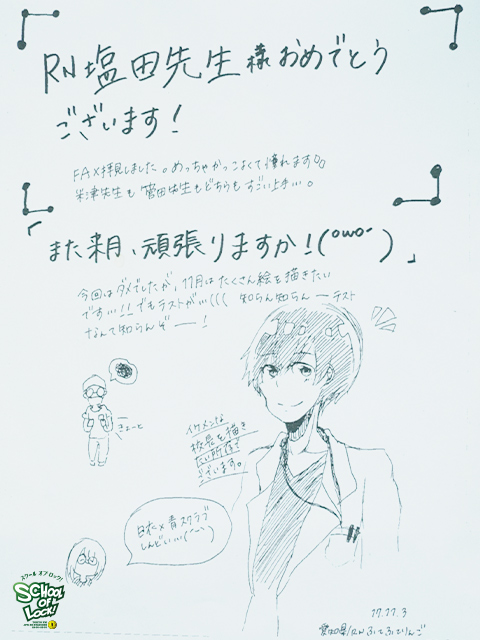 RN塩田先生様おめでとう
ございます!
FAX拝見しました。めっちゃかっこよくて憧れます
米津先生も 菅田先生もどちらもすごい上手い。
「また来月、頑張りますか!(^owo^)」
今回はダメでしたが、11月はたくさん絵を描きたい
ですい!!でもテストがい((( 知らん知らん ーテスト
なんて知らんぞー!
きょーと
イケメンな
校長を描き
たい所存で
ございます。
白衣×青スクラブ
しんどいい
スクールオブロック!
SCHOOL OF LOCK!
17.11.3